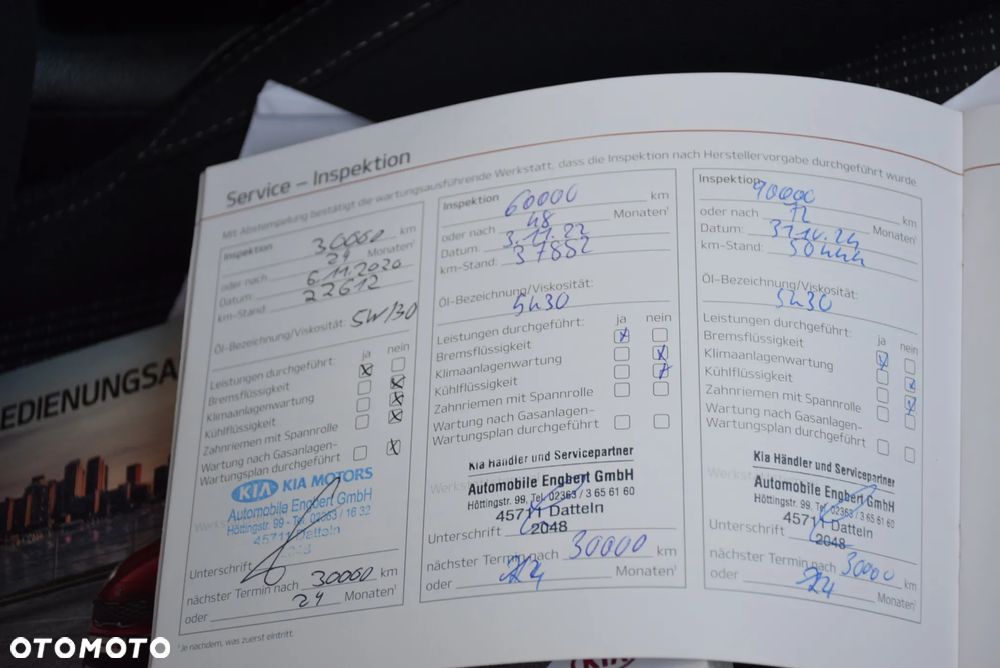 Service – Inspektion
Mit Abstempelung bestätigt die wartungsausführende Werkstatt, dass die Inspektion nach Herstellervorgabe durchgeführt wurde.
Inspektion 30000 km
oder nach 24 Monaten¹
Datum: 6.11.2020
km-Stand: 22612
Öl-Bezeichnung/Viskosität: 5W/30
Leistungen durchgeführt: ja nein
Bremsflüssigkeit
Klimaanlagenwartung
Kühlflüssigkeit
Zahnriemen mit Spannrolle
Wartung nach Gasanlagen-
Wartungsplan durchgeführt
KIA KIA MOTORS
Automobile Engbert GmbH
Höttingstr. 99 - Tel. 02363 / 16 32
45711 Datteln
Unterschrift
nächster Termin nach 30000 km
oder 24 Monaten¹
¹Je nachdem, was zuerst eintritt.
Inspektion 60000 km
oder nach 48 Monaten¹
Datum: 3.11.22
km-Stand: 37852
Öl-Bezeichnung/Viskosität:
5w30
Leistungen durchgeführt: ja nein
Bremsflüssigkeit
Klimaanlagenwartung
Kühlflüssigkeit
Zahnriemen mit Spannrolle
Wartung nach Gasanlagen-
Wartungsplan durchgeführt
Kia Händler und Servicepartner
Automobile Engbert GmbH
Höttingstr. 99, Tel. 02363 / 3 65 61 60
45711 Datteln
2048
Unterschrift
nächster Termin nach 30000 km
oder 24 Monaten¹
Inspektion 90000 km
oder nach 72 Monaten¹
Datum:
km-Stand: 50444
Öl-Bezeichnung/Viskosität:
5w30
Leistungen durchgeführt: ja nein
Bremsflüssigkeit
Klimaanlagenwartung
Kühlflüssigkeit
Zahnriemen mit Spannrolle
Wartung nach Gasanlagen-
Wartungsplan durchgeführt
Kia Händler und Servicepartner
Automobile Engbert GmbH
Höttingstr. 99, Tel. 02363 / 3 65 61 60
45711 Datteln
2048
Unterschrift
nächster Termin nach 30000 km
oder 24 Monaten¹
EDIENUNGSA
OTOMOTO
KIA